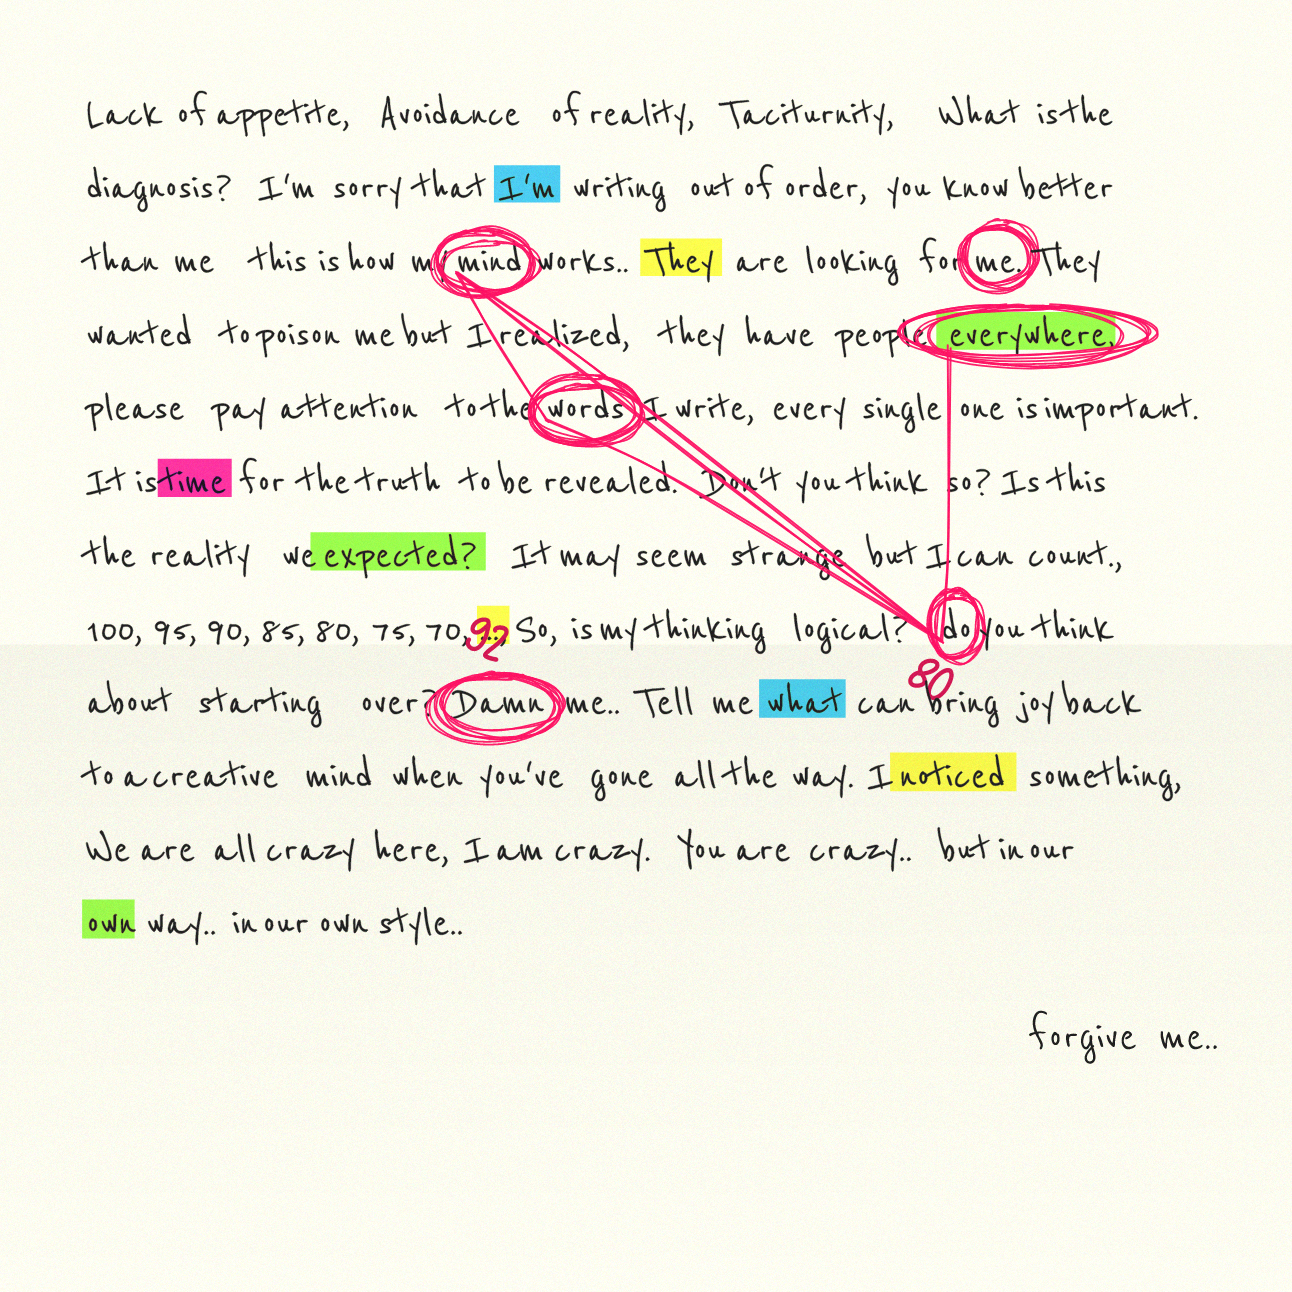 Lack of appetite, Avoidance of reality, Taciturnity, What is the
diagnosis? I'm sorry that I'm writing out of order, you know better
than me this is how my mind works.. They are looking for me. They
wanted to poison me but I realized, they have people everywhere,
please pay attention to the words I write, every single one is important.
It is time for the truth to be revealed. Don't you think so? Is this
the reality we expected? It may seem strange but I can count.,
100, 95, 90, 85, 80, 75, 70, ... So, is my thinking logical? do you think
92
80
about starting over? Damn me.. Tell me what can bring joy back
to a creative mind when you've gone all the way. I noticed something,
We are all crazy here, I am crazy. You are crazy.. but in our
own way.. in our own style..
forgive me..